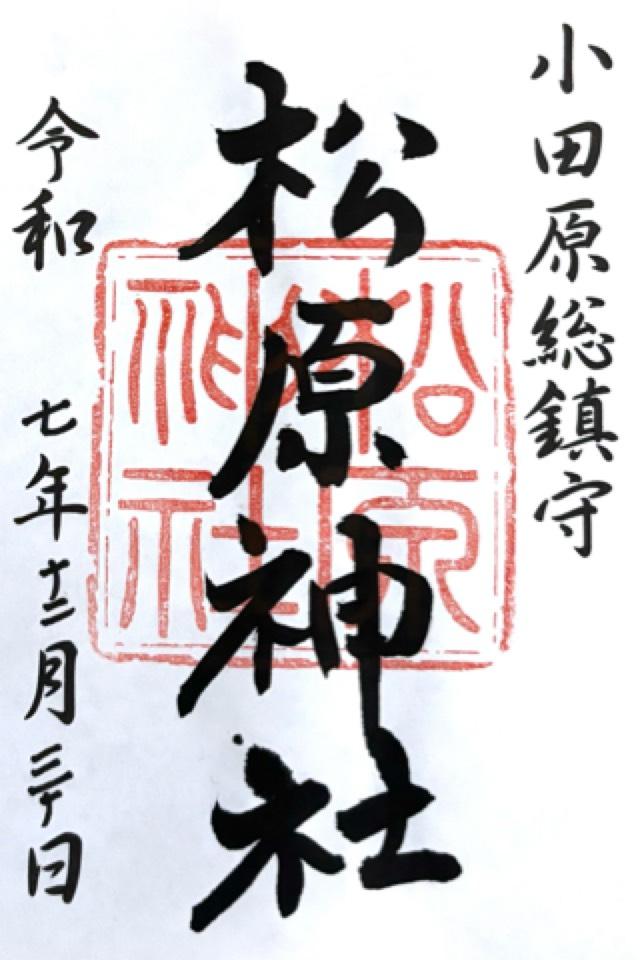 小田原総鎮守
松原神社
松原神社
令和七年十二月三十日